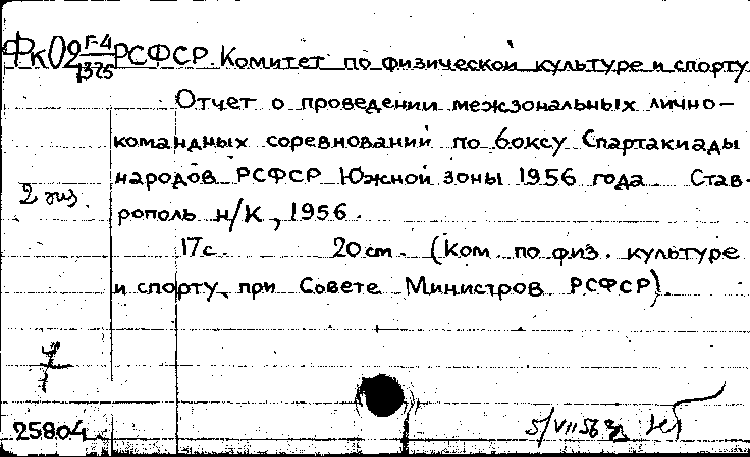 ФкО2 Г-4/1325 РСФСР. Комитет по физической культуре и спорту
Отчет о проведении межзональных лично-
командных соревнований по боксу Спартакиады
народов РСФСР Южной зоны 1956 года. Став-
2 экз.
рополь н/К, 1956.
17 с. 20 см. (Ком. по физ. культуре
и спорту при Совете Министров РСФСР).
25804
5/VII 56